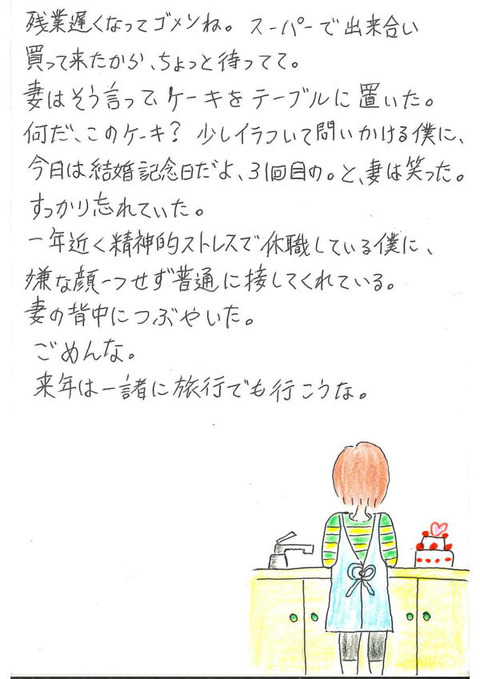 残業遅くなってゴメンね。スーパーで出来合い
買って来たから、ちょっと待ってて。
妻はそう言って、ケーキをテーブルに置いた。
何だ、このケーキ？少しイラついて問いかける僕に、
今日は結婚記念日だよ、31回目の。と、妻は笑った。
すっかり忘れていた。
一年近く精神的ストレスで休職している僕に、
嫌な顔一つせず普通に接してくれている。
妻の背中につぶやいた。
ごめんな。
来年は一諸に旅行でも行こうな。